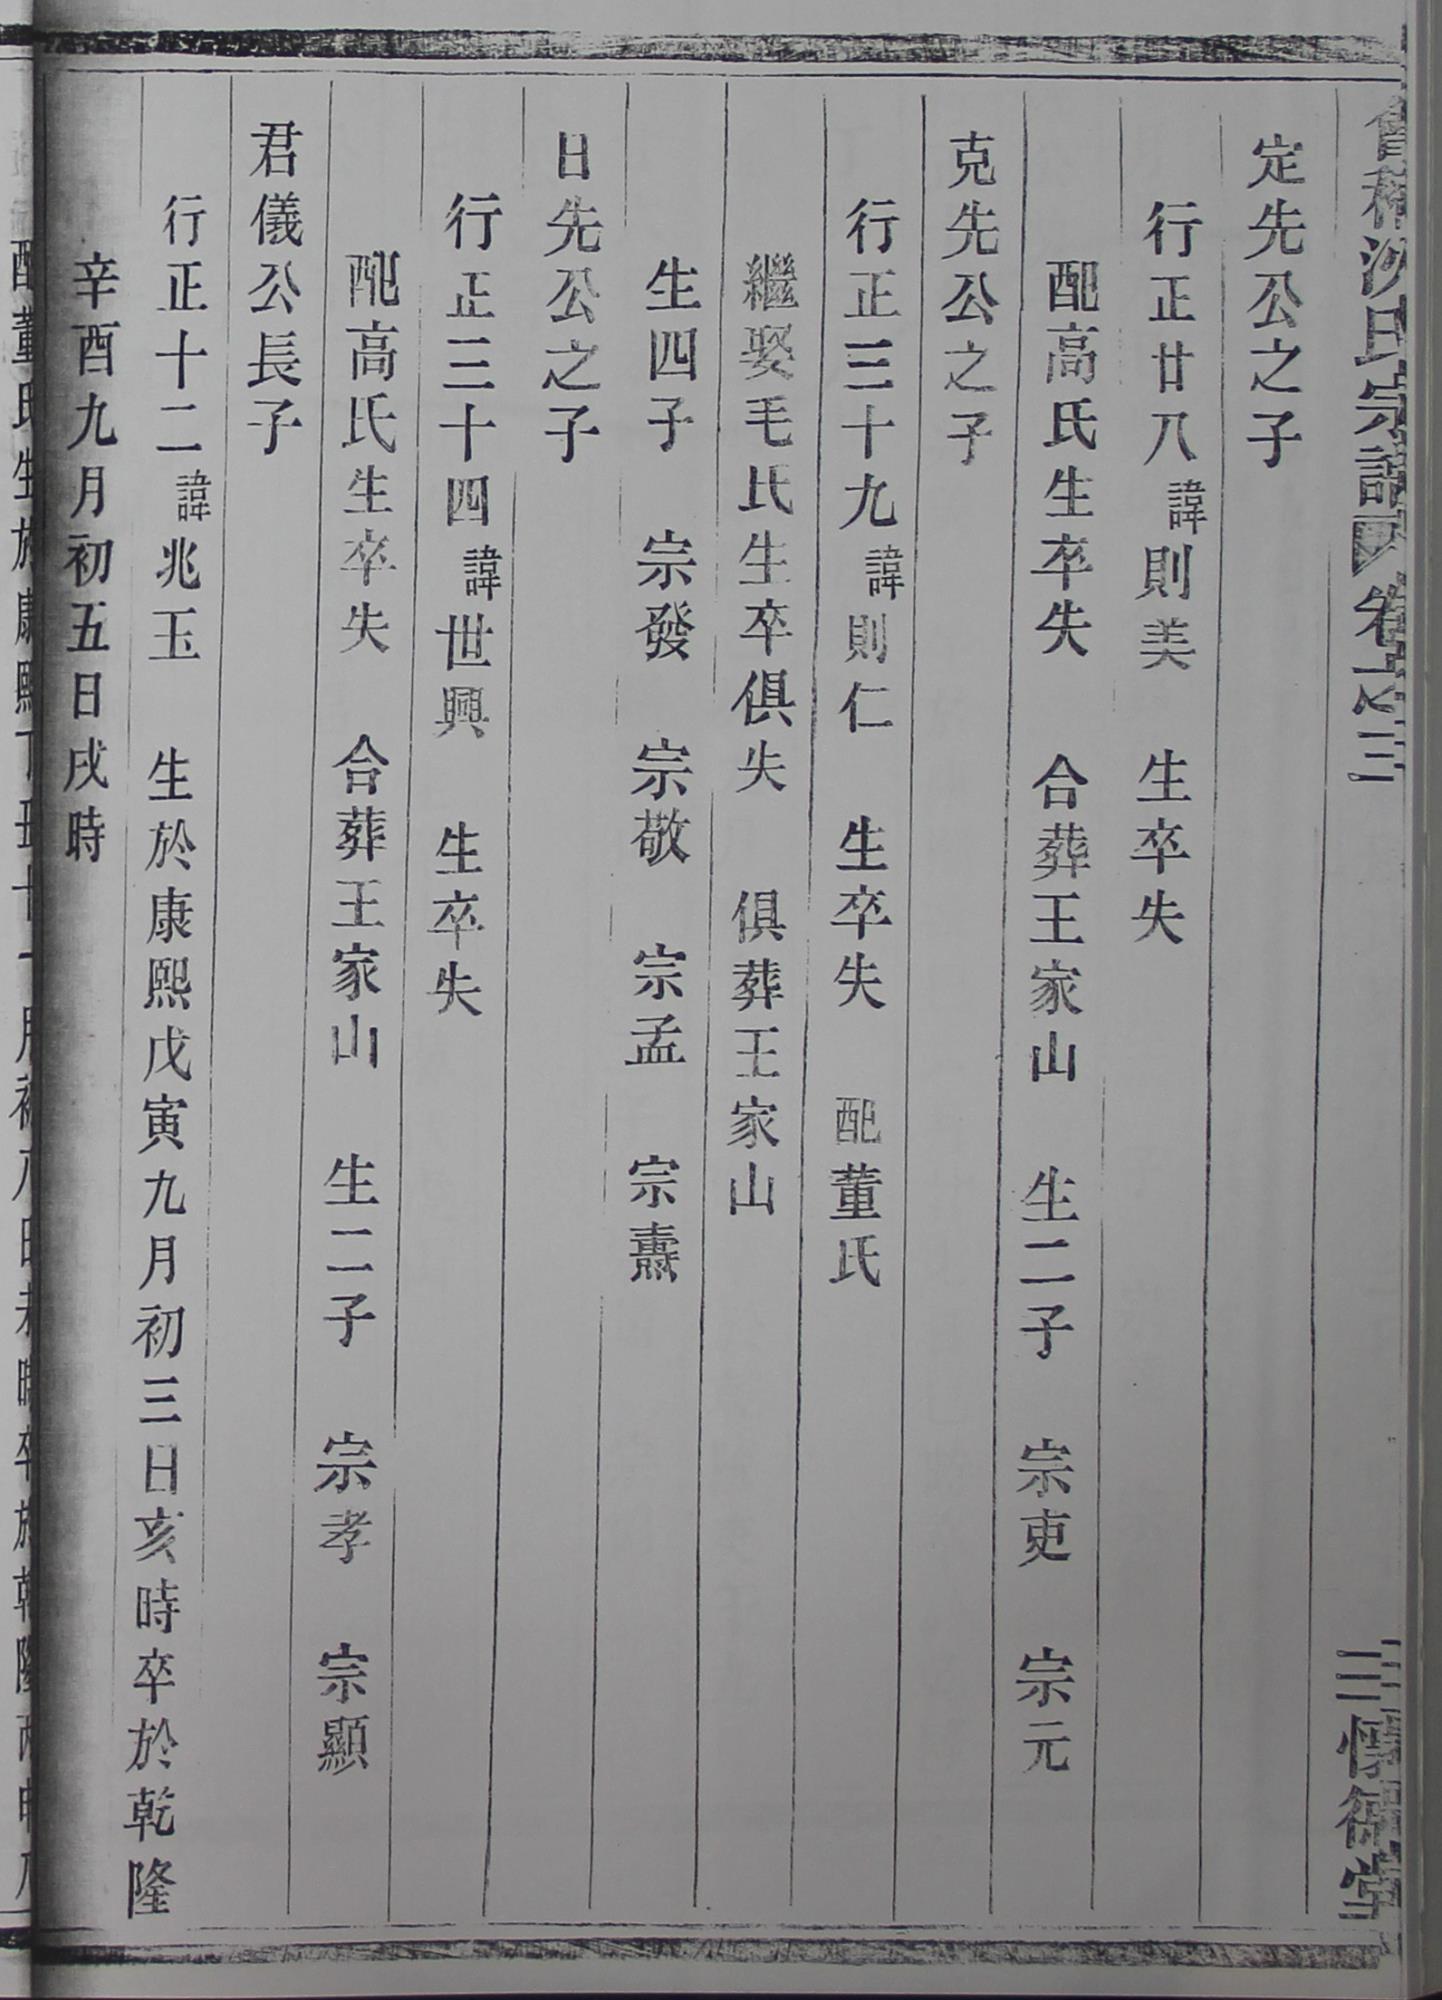 會稽沈氏宗譜 卷之三 三 懷德堂
定先公之子
行正廿八諱則美 生卒失
配高氏生卒失 合葬王家山 生二子 宗吏 宗元
克先公之子
行正三十九諱則仁 生卒失 配董氏
繼娶毛氏生卒俱失 俱葬王家山
生四子 宗發 宗敬 宗孟 宗燾
日先公之子
行正三十四諱世興 生卒失
配高氏生卒失 合葬王家山 生二子 宗孝 宗顯
君儀公長子
行正十二諱兆玉 生於康熙戊寅九月初三日亥時卒於乾隆
辛酉九月初五日戌時